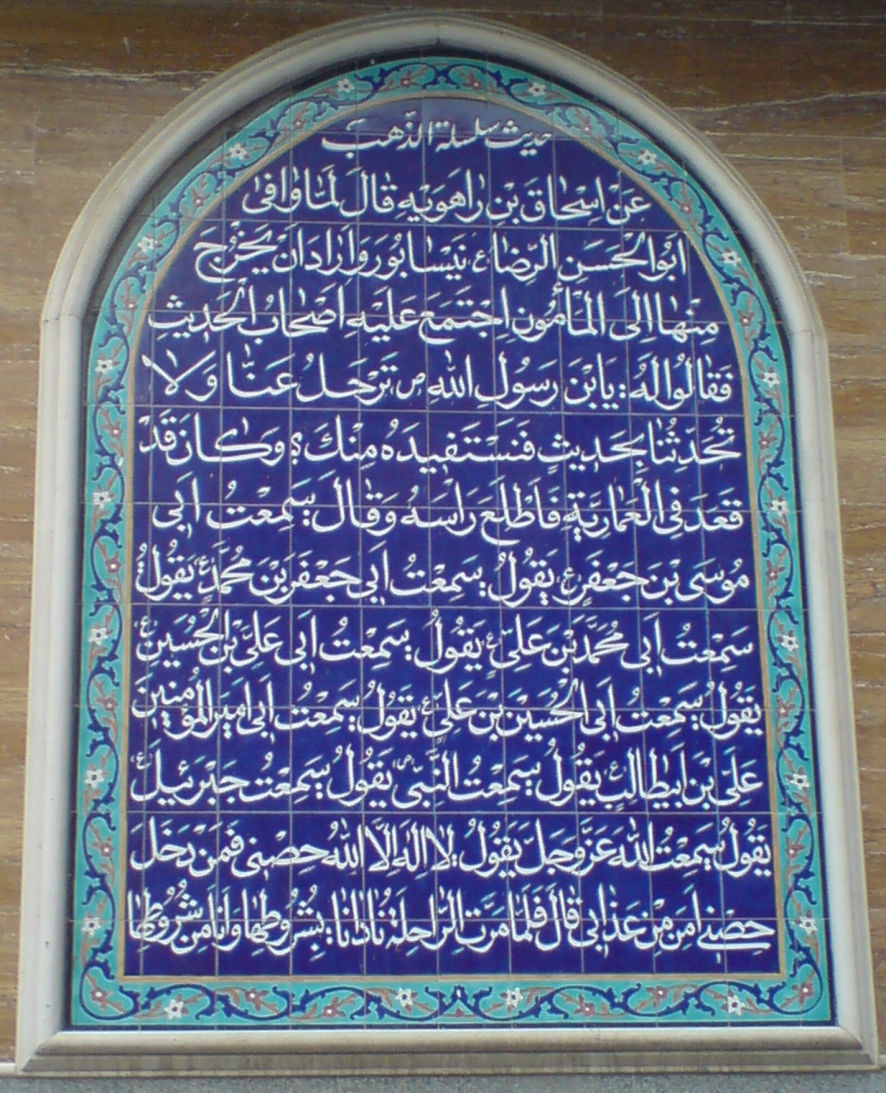 حدیث سلسلة الذّهب
عَنْ اِسْحٰاقَ بْنِ رٰاهَوَیْهِ قٰالَ لَمّٰا وٰافیٰ
اَبُوالْحَسَنِ الرِّضٰا ع نَیْسٰابُورَ وَاَرٰادَ اَنْ یَخْرُجَ
مِنْهٰا اِلَی الْمَأْمُونِ اِجْتَمَعَ عَلَیْهِ اَصْحٰابُ الْحَدیثِ
فَقٰالُوا لَهُ: یَابْنَ رَسُولِ اللهِ ص تَرْحَلُ عَنّٰا وَلٰا
تُحَدِّثُنٰا بِحَدیثٍ فَنَسْتَفیدَهُ مِنْكَ؟ وَکٰانَ قَدْ
قَعَدَ فِی الْعَمّٰارِیَّةِ فَاَطْلَعَ رَاسَهُ وَقٰالَ: سَمِعْتُ اَبی
مُوسَی بْنَ جَعْفَرٍ ع یَقُولُ: سَمِعْتُ اَبی جَعْفَرَ بْنَ مُحَمَّدٍ ع یَقُولُ:
سَمِعْتُ اَبی مُحَمَّدَ بْنَ عَلِیٍّ ع یَقُولُ: سَمِعْتُ اَبی عَلِیَّ بْنَ الْحُسَیْنِ ع
یَقُولُ: سَمِعْتُ اَبِی الْحُسَیْنَ بْنَ عَلِیٍّ ع یَقُولُ: سَمِعْتُ اَبی اَمیرَ الْمُؤْمِنینَ
عَلِیَّ بْنَ اَبیطٰالِبٍ ع یَقُولُ: سَمِعْتُ النَّبِیَّ ص یَقُولُ: سَمِعْتُ جَبْرَئیلَ ع
یَقُولُ: سَمِعْتُ اللهَ عَزَّ وَجَلَّ یَقُولُ: لٰا اِلٰهَ اِلَّا اللهُ حِصْنی فَمَنْ دَخَلَ
حِصْنی اَمِنَ مِنْ عَذٰابی قٰالَ فَلَمّٰا مَرَّتِ الرّٰاحِلَةُ نٰادٰانٰا: بِشُرُوطِهٰا وَاَنَا مِنْ شُرُوطِهٰا